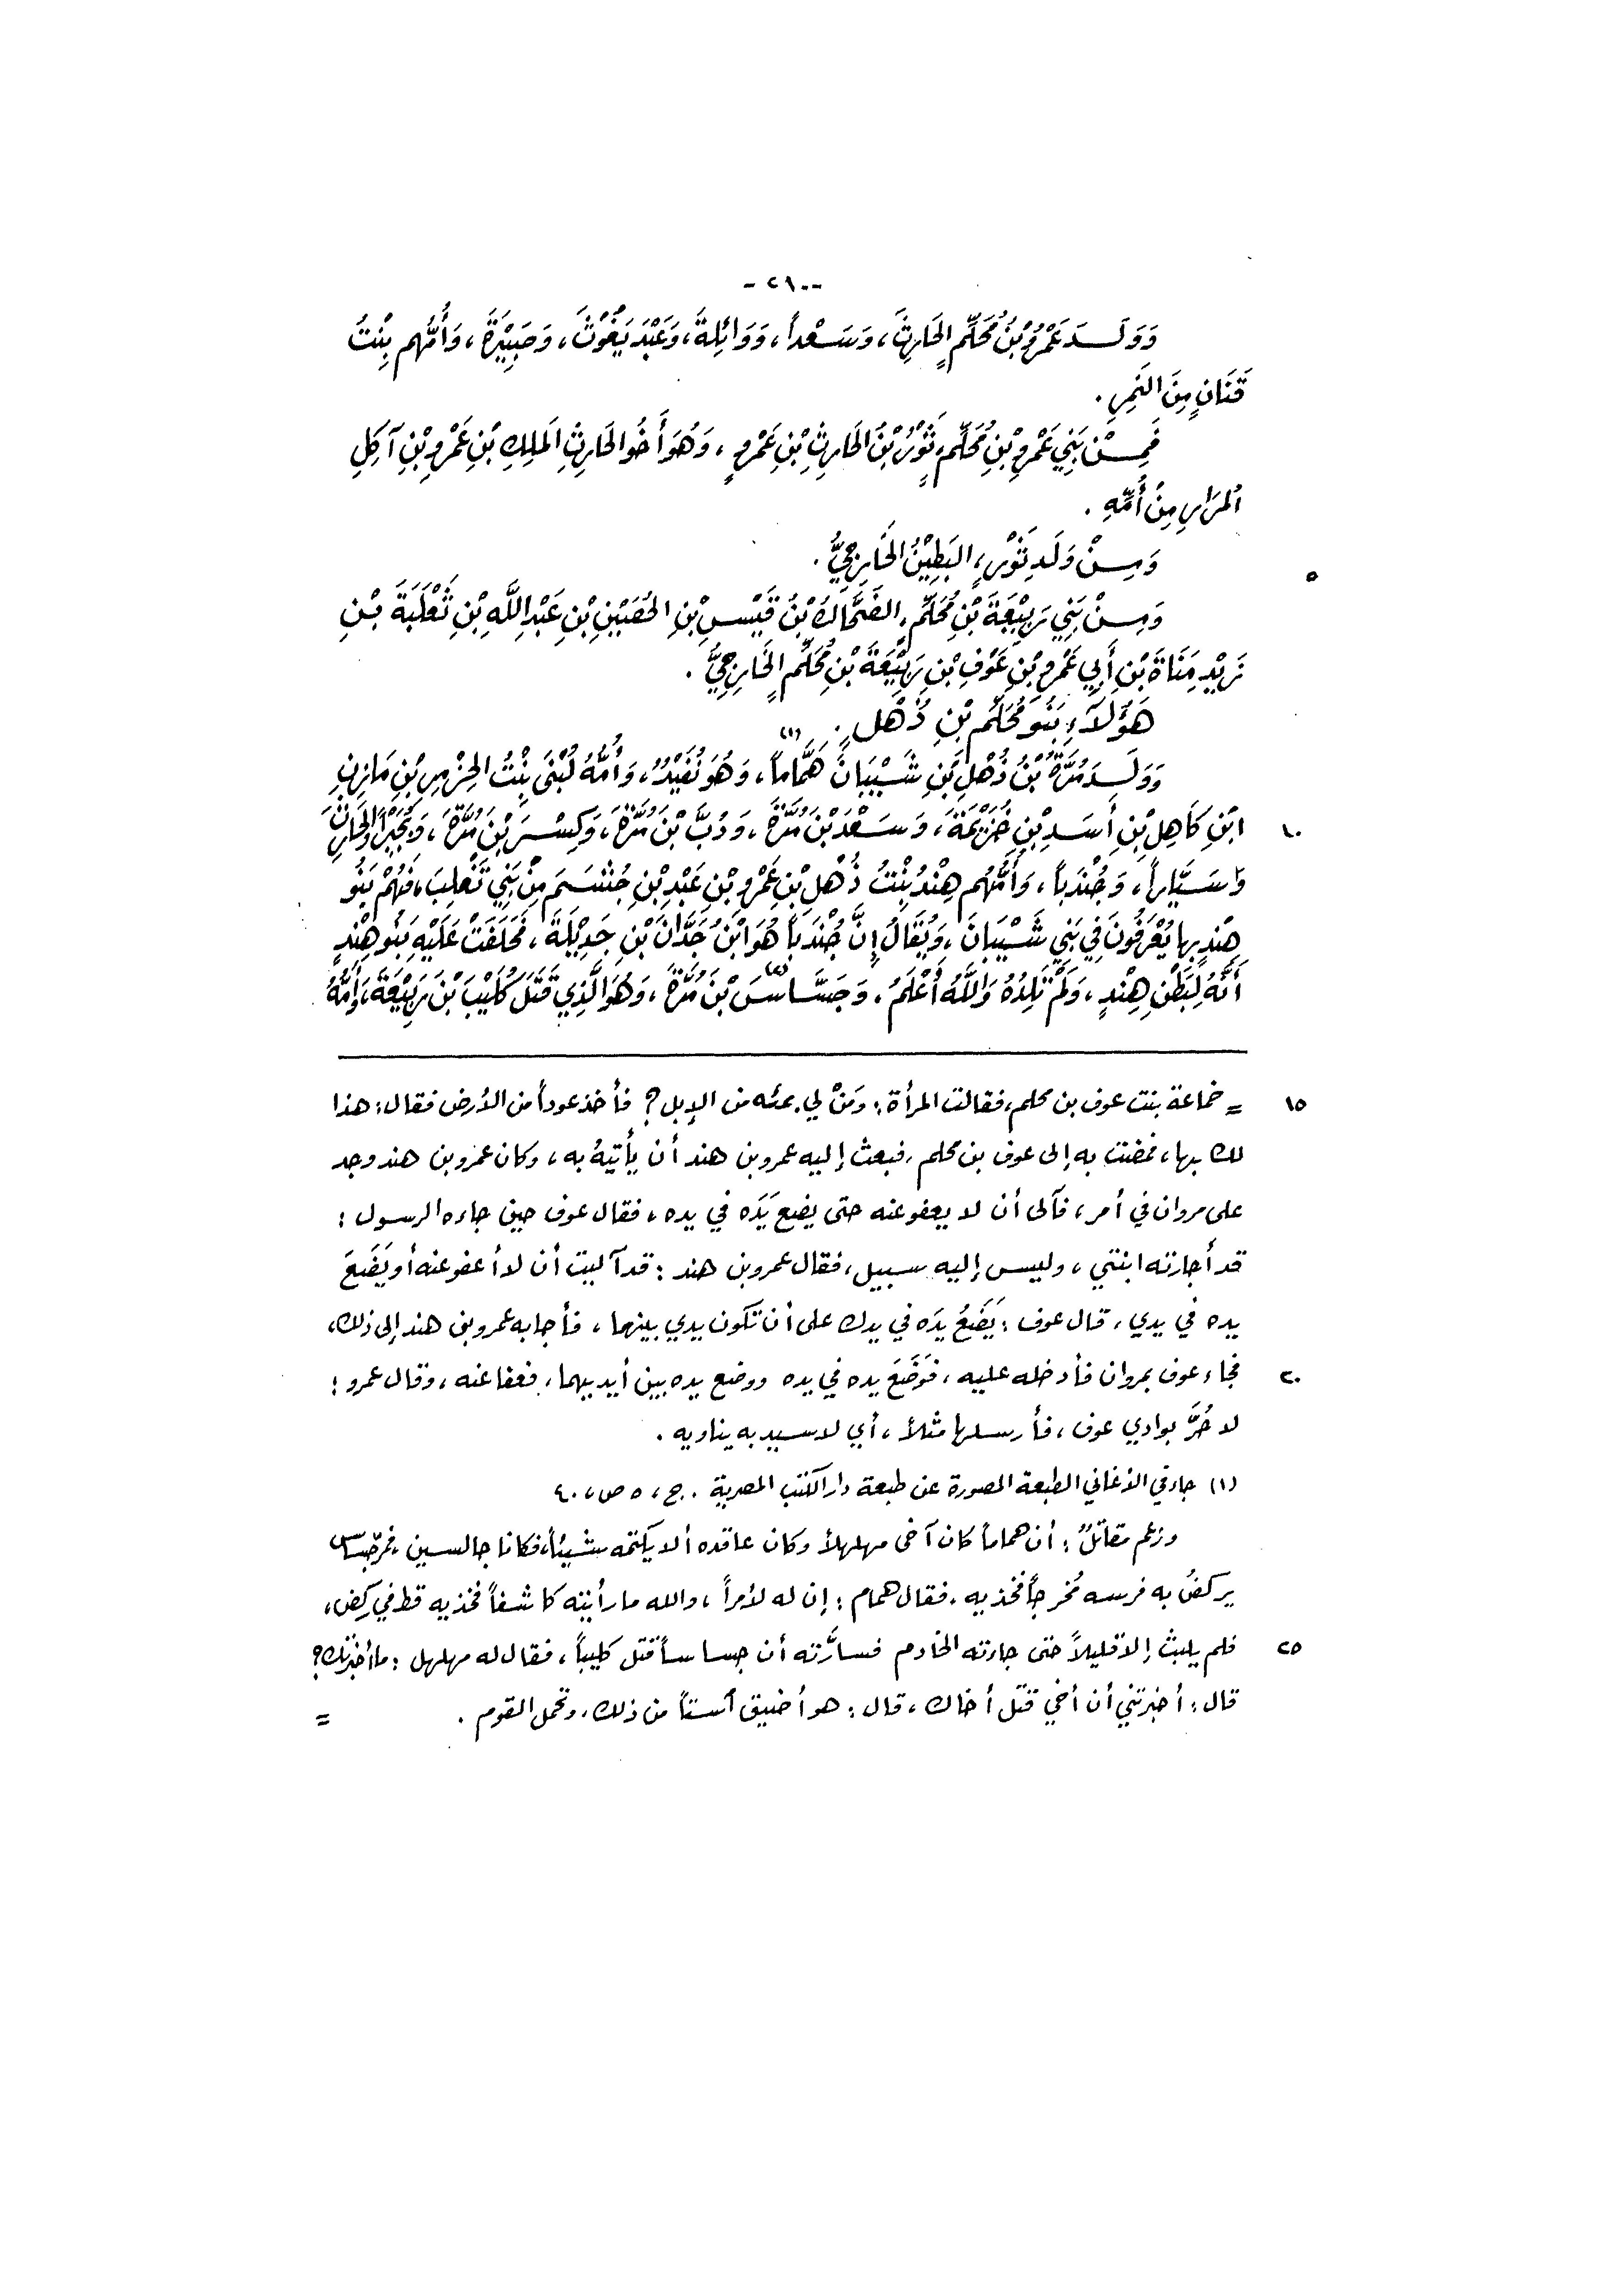 -٢١٠-
وَوَلَدَ عَمْرُو بْنُ مُحَلِّمٍ الحَارِثَ، وَسَعْداً، وَوَائِلَةَ، وَعَبْدَ يَغُوْثَ، وَصَبِيْرَةَ، وَأُمُّهم بِنْتُ
قَنَانٍ مِنَ النَّمِرِ.
فَمِنْ بَنِي عَمْرِو بْنِ مُحَلِّمٍ ثَوْرُ بْنُ الحَارِثِ بْنِ عَمْرٍو، وَهُوَ أَخُو الحَارِثِ المَلِكِ بْنِ عَمْرِو بْنِ آكِلِ
المُرَارِ مِنْ أُمِّهِ.
٥ وَمِنْ وَلَدِ ثَوْرٍ، البَطِيْنُ الخَارِجِيُّ.
وَمِنْ بَنِي رَبِيْعَةَ بْنِ مُحَلِّمٍ، الضَّحَّاكُ بْنُ قَيْسِ بْنِ الحُصَيْنِ بْنِ عَبْدِ اللَّهِ بْنِ ثَعْلَبَةَ بْنِ
زَيْدِ مَنَاةَ بْنِ أَبِي عَمْرِو بْنِ عَوْفِ بْنِ رَبِيْعَةَ بْنِ مُحَلِّمٍ الخَارِجِيُّ.
هَؤُلَاَءِ بَنُو مُحَلِّمِ بْنِ ذُهْلٍ.
وَوَلَدَ مُرَّةُ بْنُ ذُهْلِ بْنِ شَيْبَانَ هَمَّاماً(١)، وَهُوَ نُفَيْدٌ، وَأُمُّهُ لُبْنَى بِنْتُ الحِزْمِرِ بْنِ مَازِنِ
١٠ ابْنِ كَاهِلِ بْنِ أَسَدِ بْنِ خُزَيْمَةَ، وَسَعْدَ بْنَ مُرَّةَ، وَدُبَّ بْنَ مُرَّةَ، وَكِسْرَ بْنَ مُرَّةَ، وَبُجَيْراً، وَالحَارِثَ،
وَسَيَّاراً، وَجُنْدَباً، وَأُمُّهُم هِنْدُ بِنْتُ ذُهْلِ بْنِ عَمْرِو بْنِ عَبْدِ بْنِ جُشَمَ مِنْ بَنِي تَغْلِبَ، فَهُمْ بَنُو
هِنْدٍ بِهَا يُعْرَفُونَ فِي بَنِي شَيْبَانَ، وَيُقَالُ إِنَّ جُنْدَباً هُوَ ابْنُ جَدَّانَ بْنِ جَدِيْلَةَ، فَحَلَفَتْ عَلَيْهِ بَنُو هِنْدٍ
أَنَّهُ لِبَطْنِ هِنْدٍ، وَلَمْ تَلِدْهُ وَاللَّهُ أَعْلَمُ. وَجَسَّاسَ(٢) بْنَ مُرَّةَ، وَهُوَ الَّذِي قَتَلَ كُلَيْبَ بْنَ رَبِيْعَةَ، وَأُمُّهُ
١٥ = خماعة بنت عوف بن محلم، فقالت المرأة: ومَنْ لي بمئه من الإبل؟ فأخذ عوداً من الأرض فقال: هذا
لك بها، فمضت به إلى عوف بن محلم، فبعث إليه عمرو بن هند أن يأتيهُ به، وكان عمرو بن هند وجد
على مروان في أمر، فآلى أن لا يعفو عنه حتى يضع يَدَه في يده، فقال عوف حين جاءه الرسول:
قد أجارته ابنتي، وليس إليه سبيل، فقال عمرو بن هند: قد آليت أن لا أعفو عنه أو يَضَعَ
يده في يدي، قال عوف: يَضَعُ يدَه في يدك على أن تكون يدي بينهما، فأجابه عمرو بن هند إلى ذلك،
٢٠ فجاء عوف بمروان فأدخله عليه، فوَضَعَ يده في يده ووضع يده بين أيديهما، فعفا عنه، وقال عمرو:
لا حُرَّ بوادي عوف، فأرسلها مثلاً، أي لا سيد به يناويه.
(١) جاء في الأغاني الطبعة المصورة عن طبعة دار الكتب المصرية. ج، ٥ ص، ٤٠
وزعم مقاتلٌ: أن هماماً كان آخى مهلهلاً وكان عاقده ألا يكتمه شيئاً، فكانا جالسين، فمرّ جسّاس
يركضُ به فرسه مُخرجاً فخذيه. فقال همام: إن له لأمراً، والله ما رأيته كاشفاً فخذيه قط في ركض،
٢٥ فلم يلبث إلا قليلاً حتى جاءته الخادم فسارَّته أن جساساً قتل كليباً، فقال له مهلهل: ما أخبرتك؟
قال: أخبرتني أن أخي قتل أخاك، قال: هو أضيق أستاً من ذلك، وتحمل القوم. =